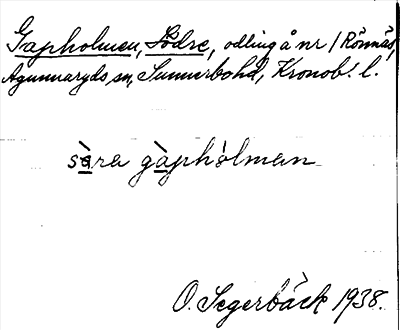 Gapholmen, Södre, odling å nr 1 Rönnäs,
Agunnaryds sn, Sunnerbohd, Kronob. l.
sàra gàphòlman
O. Segerbäck 1938.